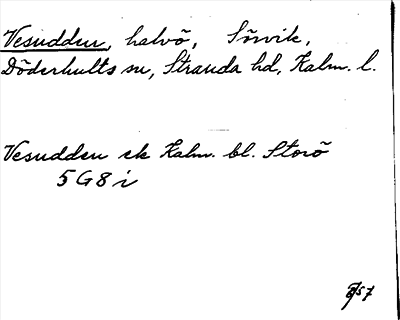 Vesudden, halvö, Sörvik,
Döderhults sn, Stranda hd, Kalm. l.
Vesudden ek Kalm. bl. Storö
5G8i
57